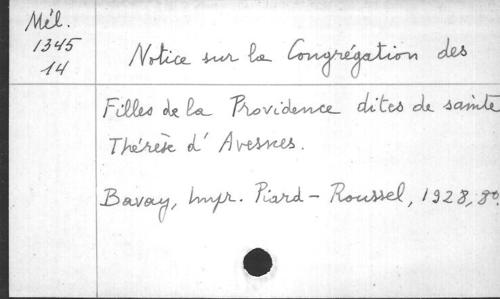 Mél.
1345
14
Notice sur la Congrégation des
Filles de la Providence dites de sainte
Thérèse d'Avesnes.
Bavay, Impr. Piard-Roussel, 1928, 8º.